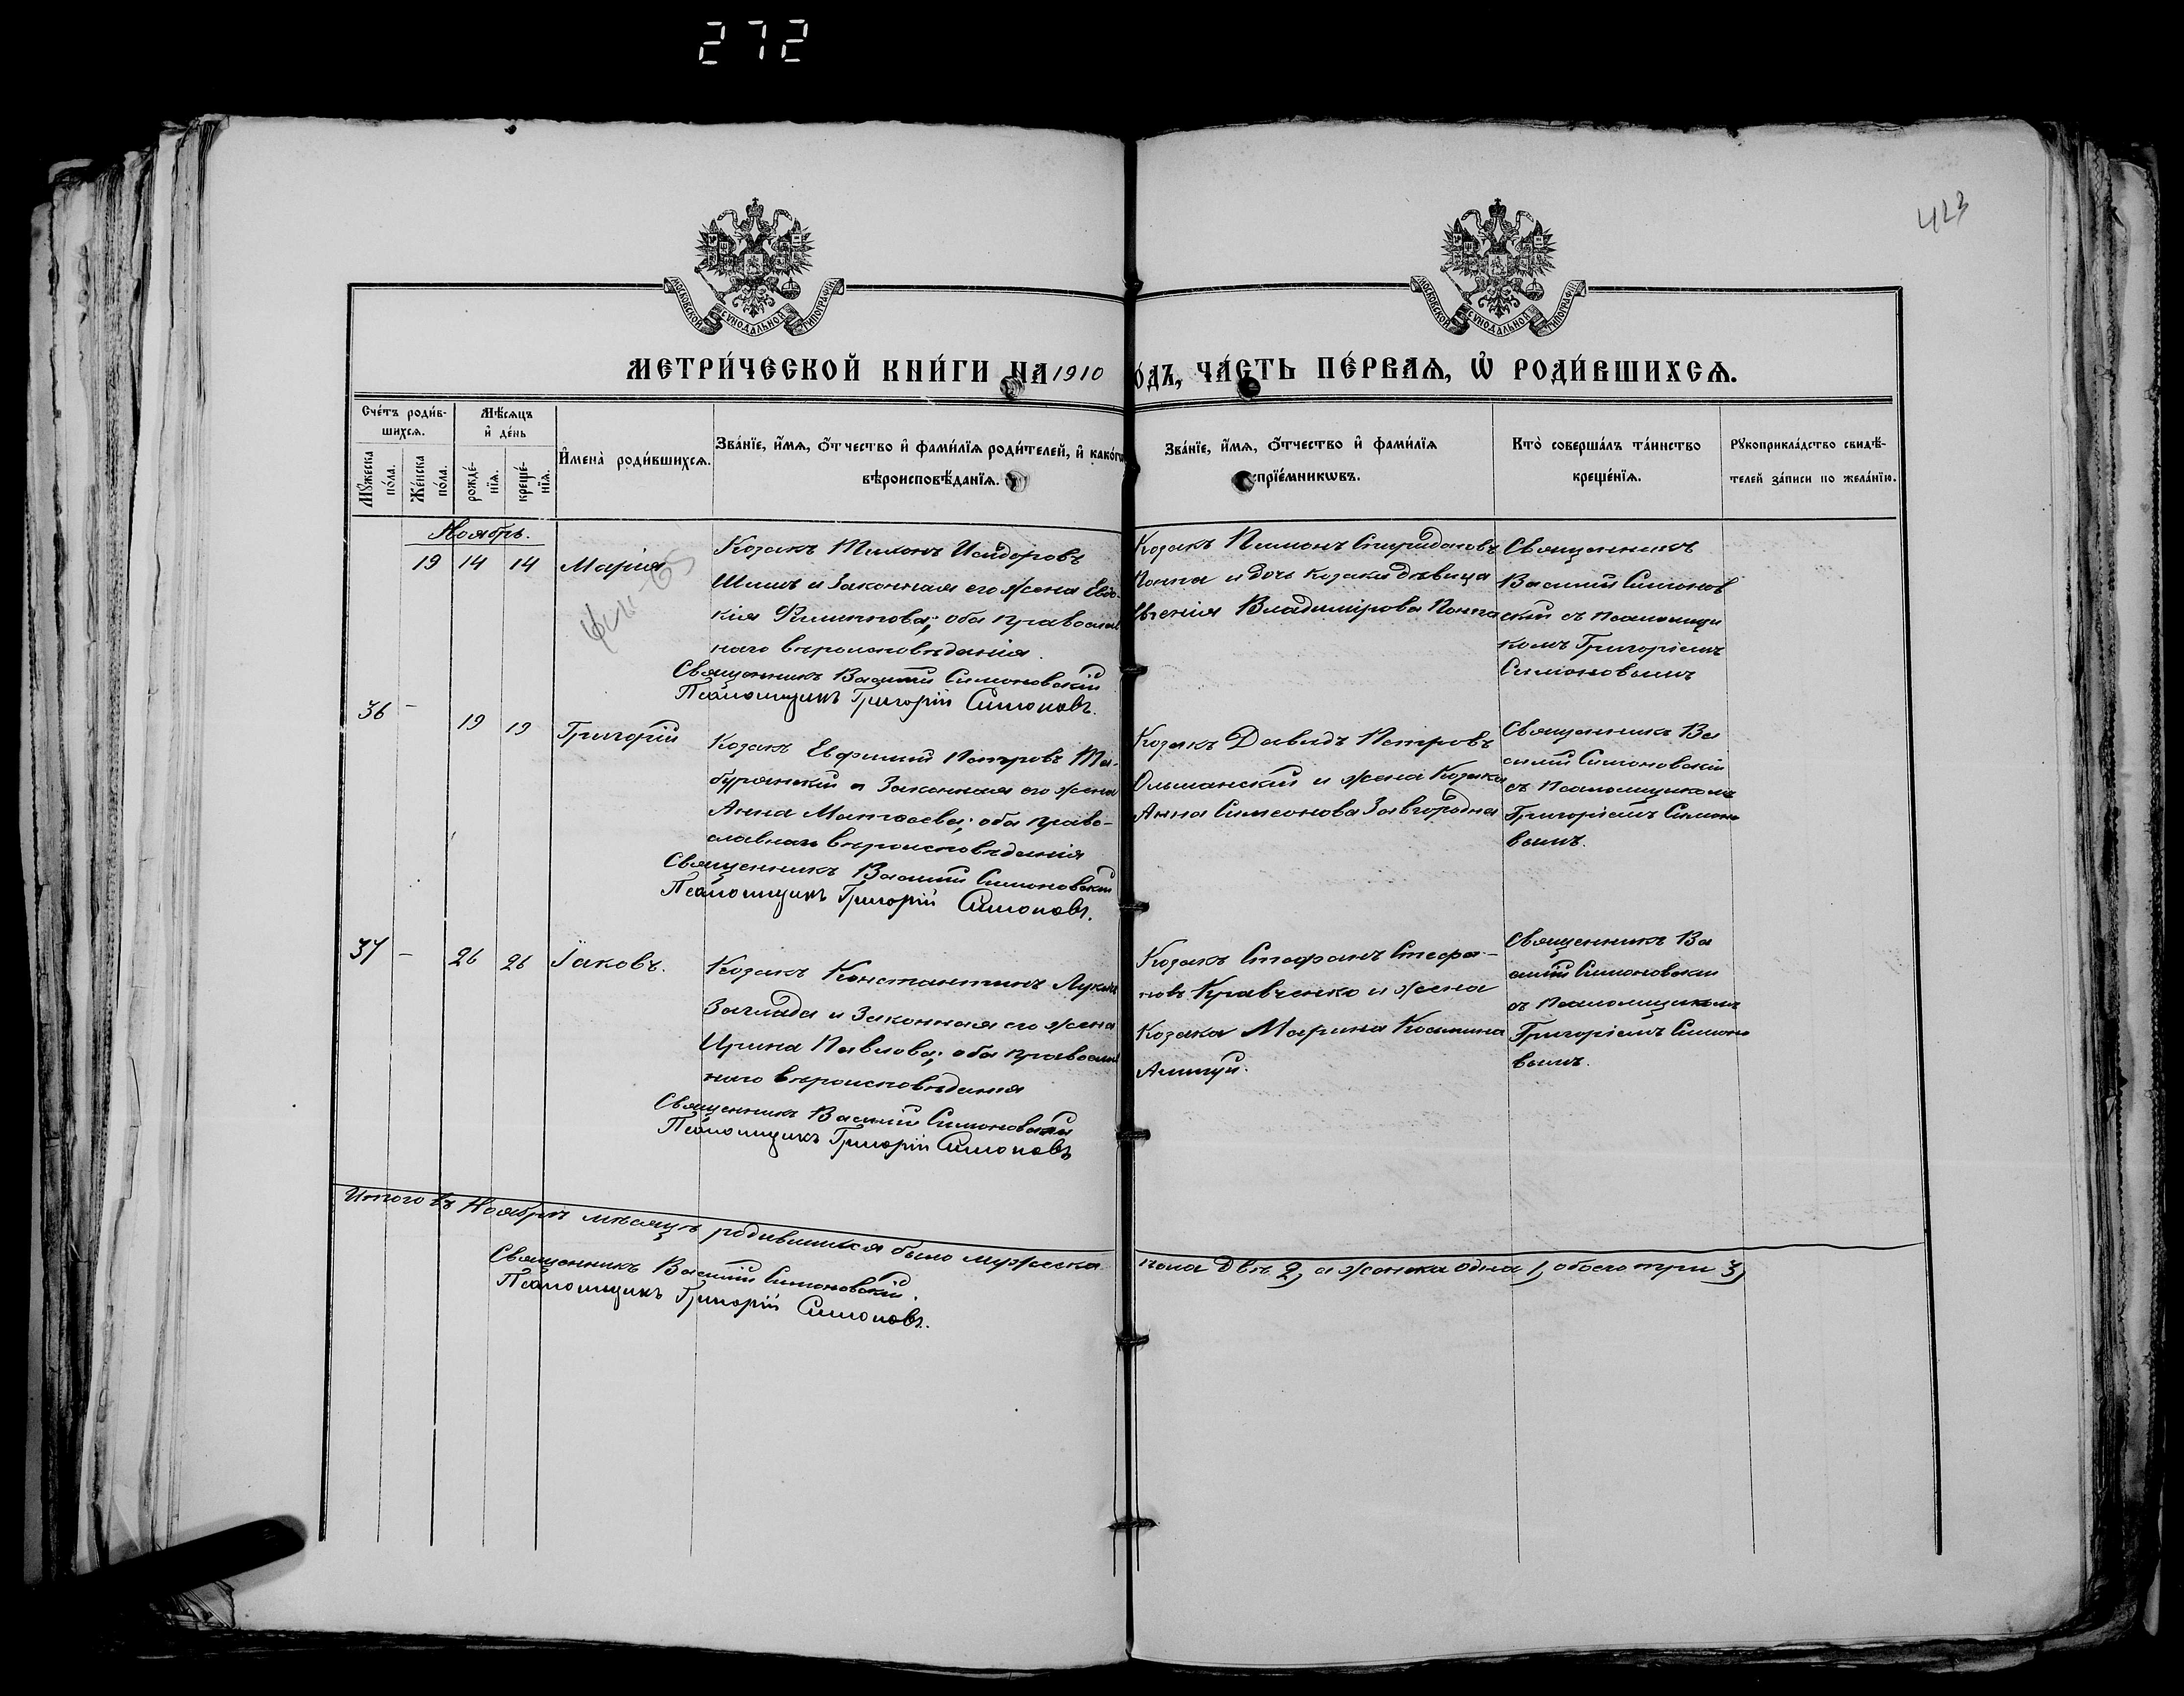 272
423
МОСКОВСКОЙ СѴНОДАЛЬНОЙ ТИПОГРАФІИ
МОСКОВСКОЙ СѴНОДАЛЬНОЙ ТИПОГРАФІИ
МЕТРИ́ЧЕСКОЙ КНИ́ГИ НА 1910
О́ДЪ, ЧА́СТЬ ПЕ́РВАѦ, Ѡ҆ РОДИ́ВШИХСѦ.
Сче́тъ роди́в-
шихсѧ.
Мꙋ́жеска
по́ла.
Же́нска
по́ла.
Мѣ́сѧцъ
и҆ де́нь
рожде́-
нїѧ.
креще́-
нїѧ.
И҆мена̀ роди́вшихсѧ.
Зва́нїе, и҆́мѧ, ѻ҆́тчество и҆ фами́лїѧ роди́телей, и҆ како́гѡ
вѣроисповѣ́данїѧ.
Зва́нїе, и҆́мѧ, ѻ҆́тчество и҆ фами́лїѧ
спрїе́мникѡвъ.
Кто̀ соверша́лъ та́инство
креще́нїѧ.
Рꙋкоприкла́дство свидѣ́-
телей за́писи по жела́нїю.
Ноябрь.
19 14 14 Марія
Козакъ Тихонъ Исидоровъ
Шишъ и законная его жена Евдо-
кія Филиппова; оба православ
наго вѣроисповѣданія.
Священникъ Василій Симоновскій
Псаломщикъ Григорій Симоновъ.
Козакъ Пимонъ Спиридоновъ
Попка и дочь козака дѣвица
Евгенія Владимірова Попка
Священникъ
Василій Симонов
скій съ псаломщи
комъ Григоріемъ
Симоновымъ
36 - 19 19 Григорій
Козакъ Евфимій Петровъ Та-
буранскій и законная его жена
Анна Матѳеева; оба право-
славнаго вѣроисповѣданія
Священникъ Василій Симоновскій
Псаломщикъ Григорій Симоновъ.
Козакъ Давидъ Петровъ
Ольшанскій и жена козака
Анна Симеонова Завгородня
Священникъ Ва
силій Симоновскій
съ псаломщикомъ
Григоріемъ Симоно
вымъ.
37 - 26 26 Іаковъ.
Козакъ Константинъ Лукинъ
Заглада и законная его жена
Ирина Павлова; оба православ
наго вѣроисповѣданія
Священникъ Василій Симоновскій
Псаломщикъ Григорій Симоновъ
Козакъ Стефанъ Стефа-
новъ Кравченко и жена
козака Марина Косьмина
Священникъ Ва
силій Симоновскій
съ псаломщикомъ
Григоріемъ Симоно
вымъ.
Итого въ Ноябрѣ мѣсяцѣ родившихся было мужеска
пола двѣ 2, а женска одна 1, обоего три 3,
Священникъ Василій Симоновскій.
Псаломщикъ Григорій Симоновъ.